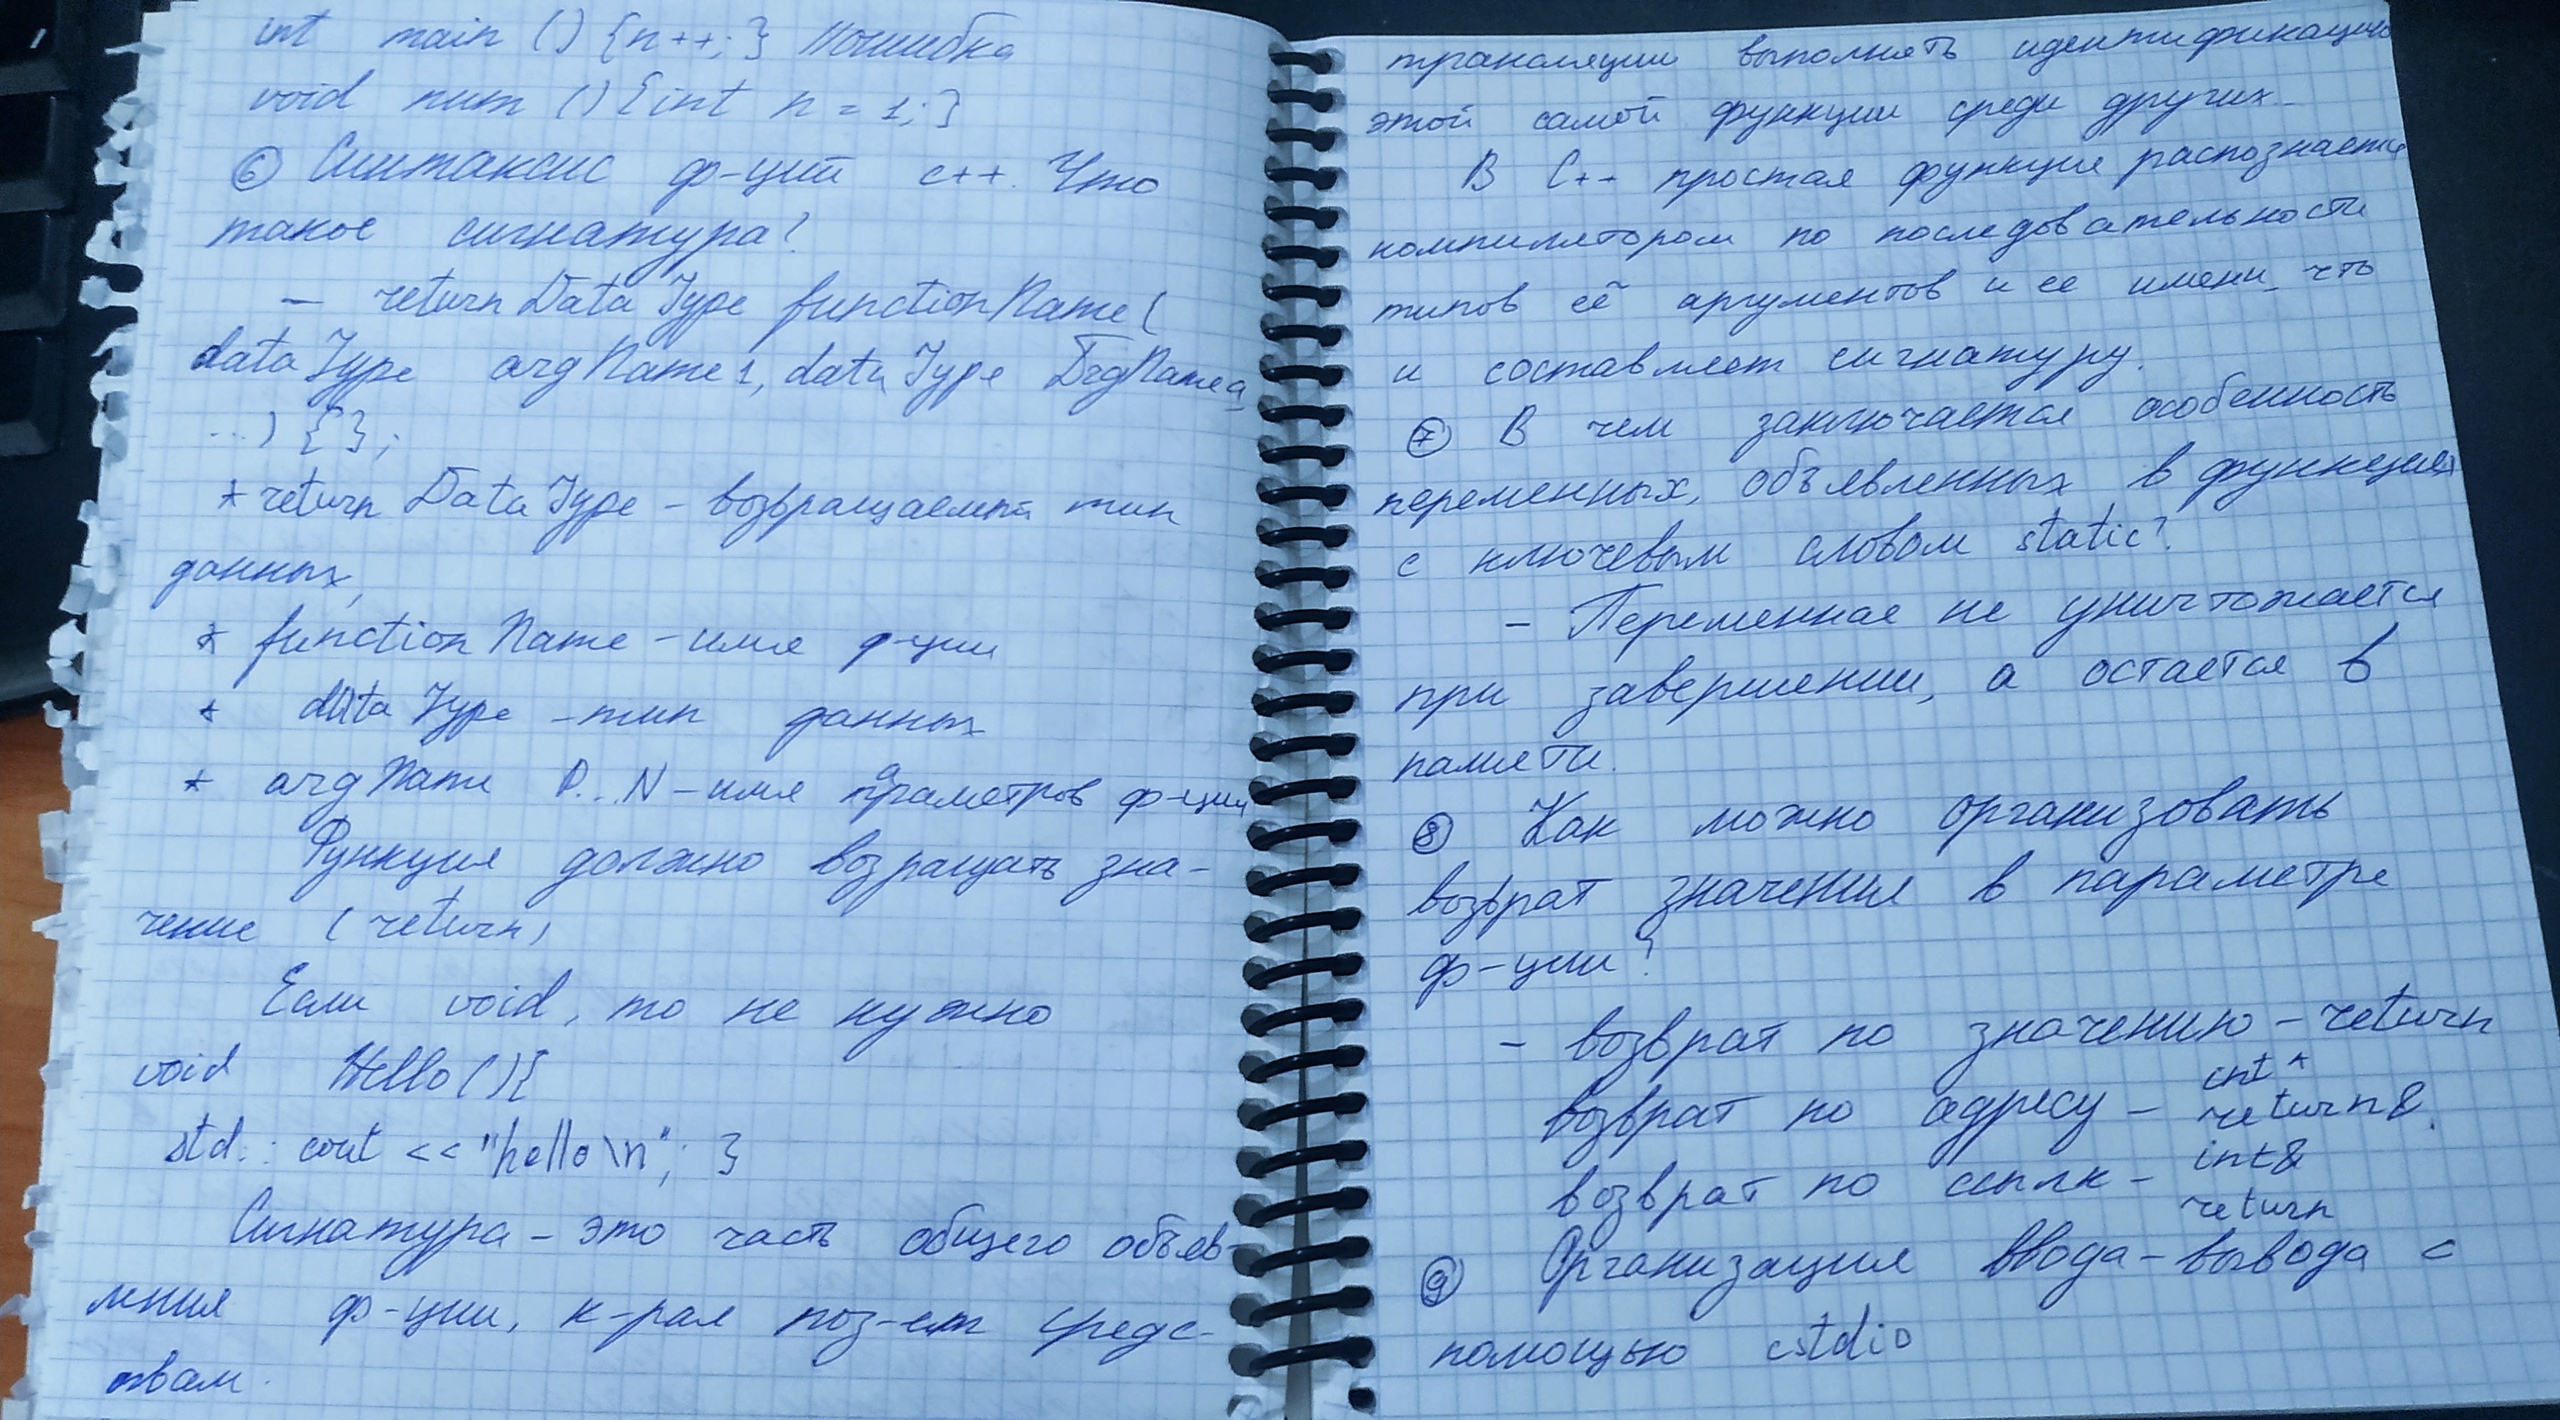 int main () {n++;} // ошибка
void num () {int n = 1;}
⑥ Синтаксис ф-ций c++. Что
такое сигнатура?
– returnDataType functionName (
dataType argName1, dataType
...) { };
* returnDataType – возвращаемый тип
данных,
* functionName – имя ф-ции
* dataType – тип данных
* argName N – имя параметров ф-ции
Функция должно возращать зна-
чение (return)
Если void, то не нужно
void Hello () {
std:: cout << "hello \n"; }
Сигнатура – это часть общего объяв-
ления ф-ции, к-рая поз-ет средс-
твам.
трансляции выполнять идентификацию
этой самой функции среди других.
В C++ простая функция распознается
компилятором по последовательности
типов её аргументов и ее имени, что
и составляет сигнатуру.
⑦ В чем заключается особенность
переменных, объявленных в функциях
с ключевым словом static?
– Переменная не уничтожается
при завершении, а остается в
памяти.
⑧ Как можно организовать
возврат значения в параметре
ф-ции?
– возврат по значению – return
int *
возврат по адресу – return &.
int&
возврат по ссылк –
return
⑨ Организация ввода-вывода с
помощью cstdio